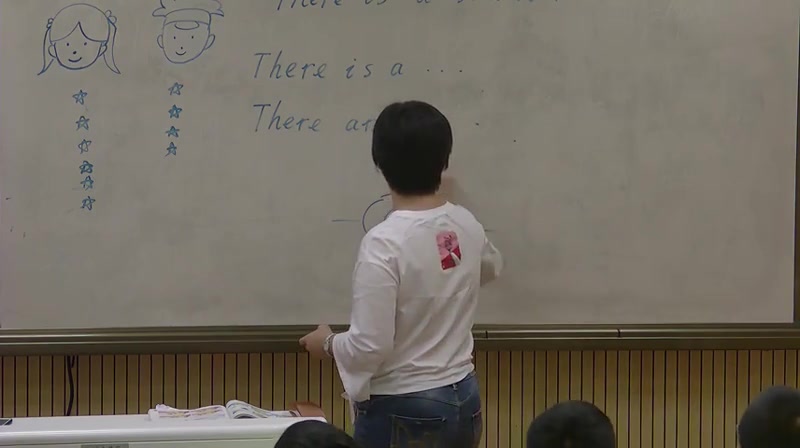 There is a
There is a ...
There